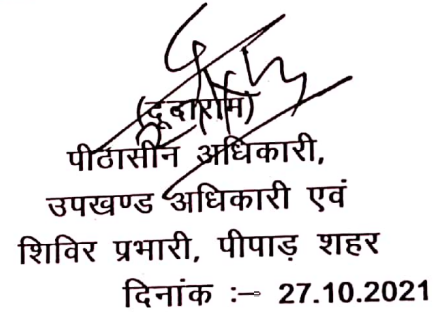 (दूदाराम)
पीठासीन अधिकारी,
उपखण्ड अधिकारी एवं
शिविर प्रभारी, पीपाड़ शहर
दिनांक :– 27.10.2021